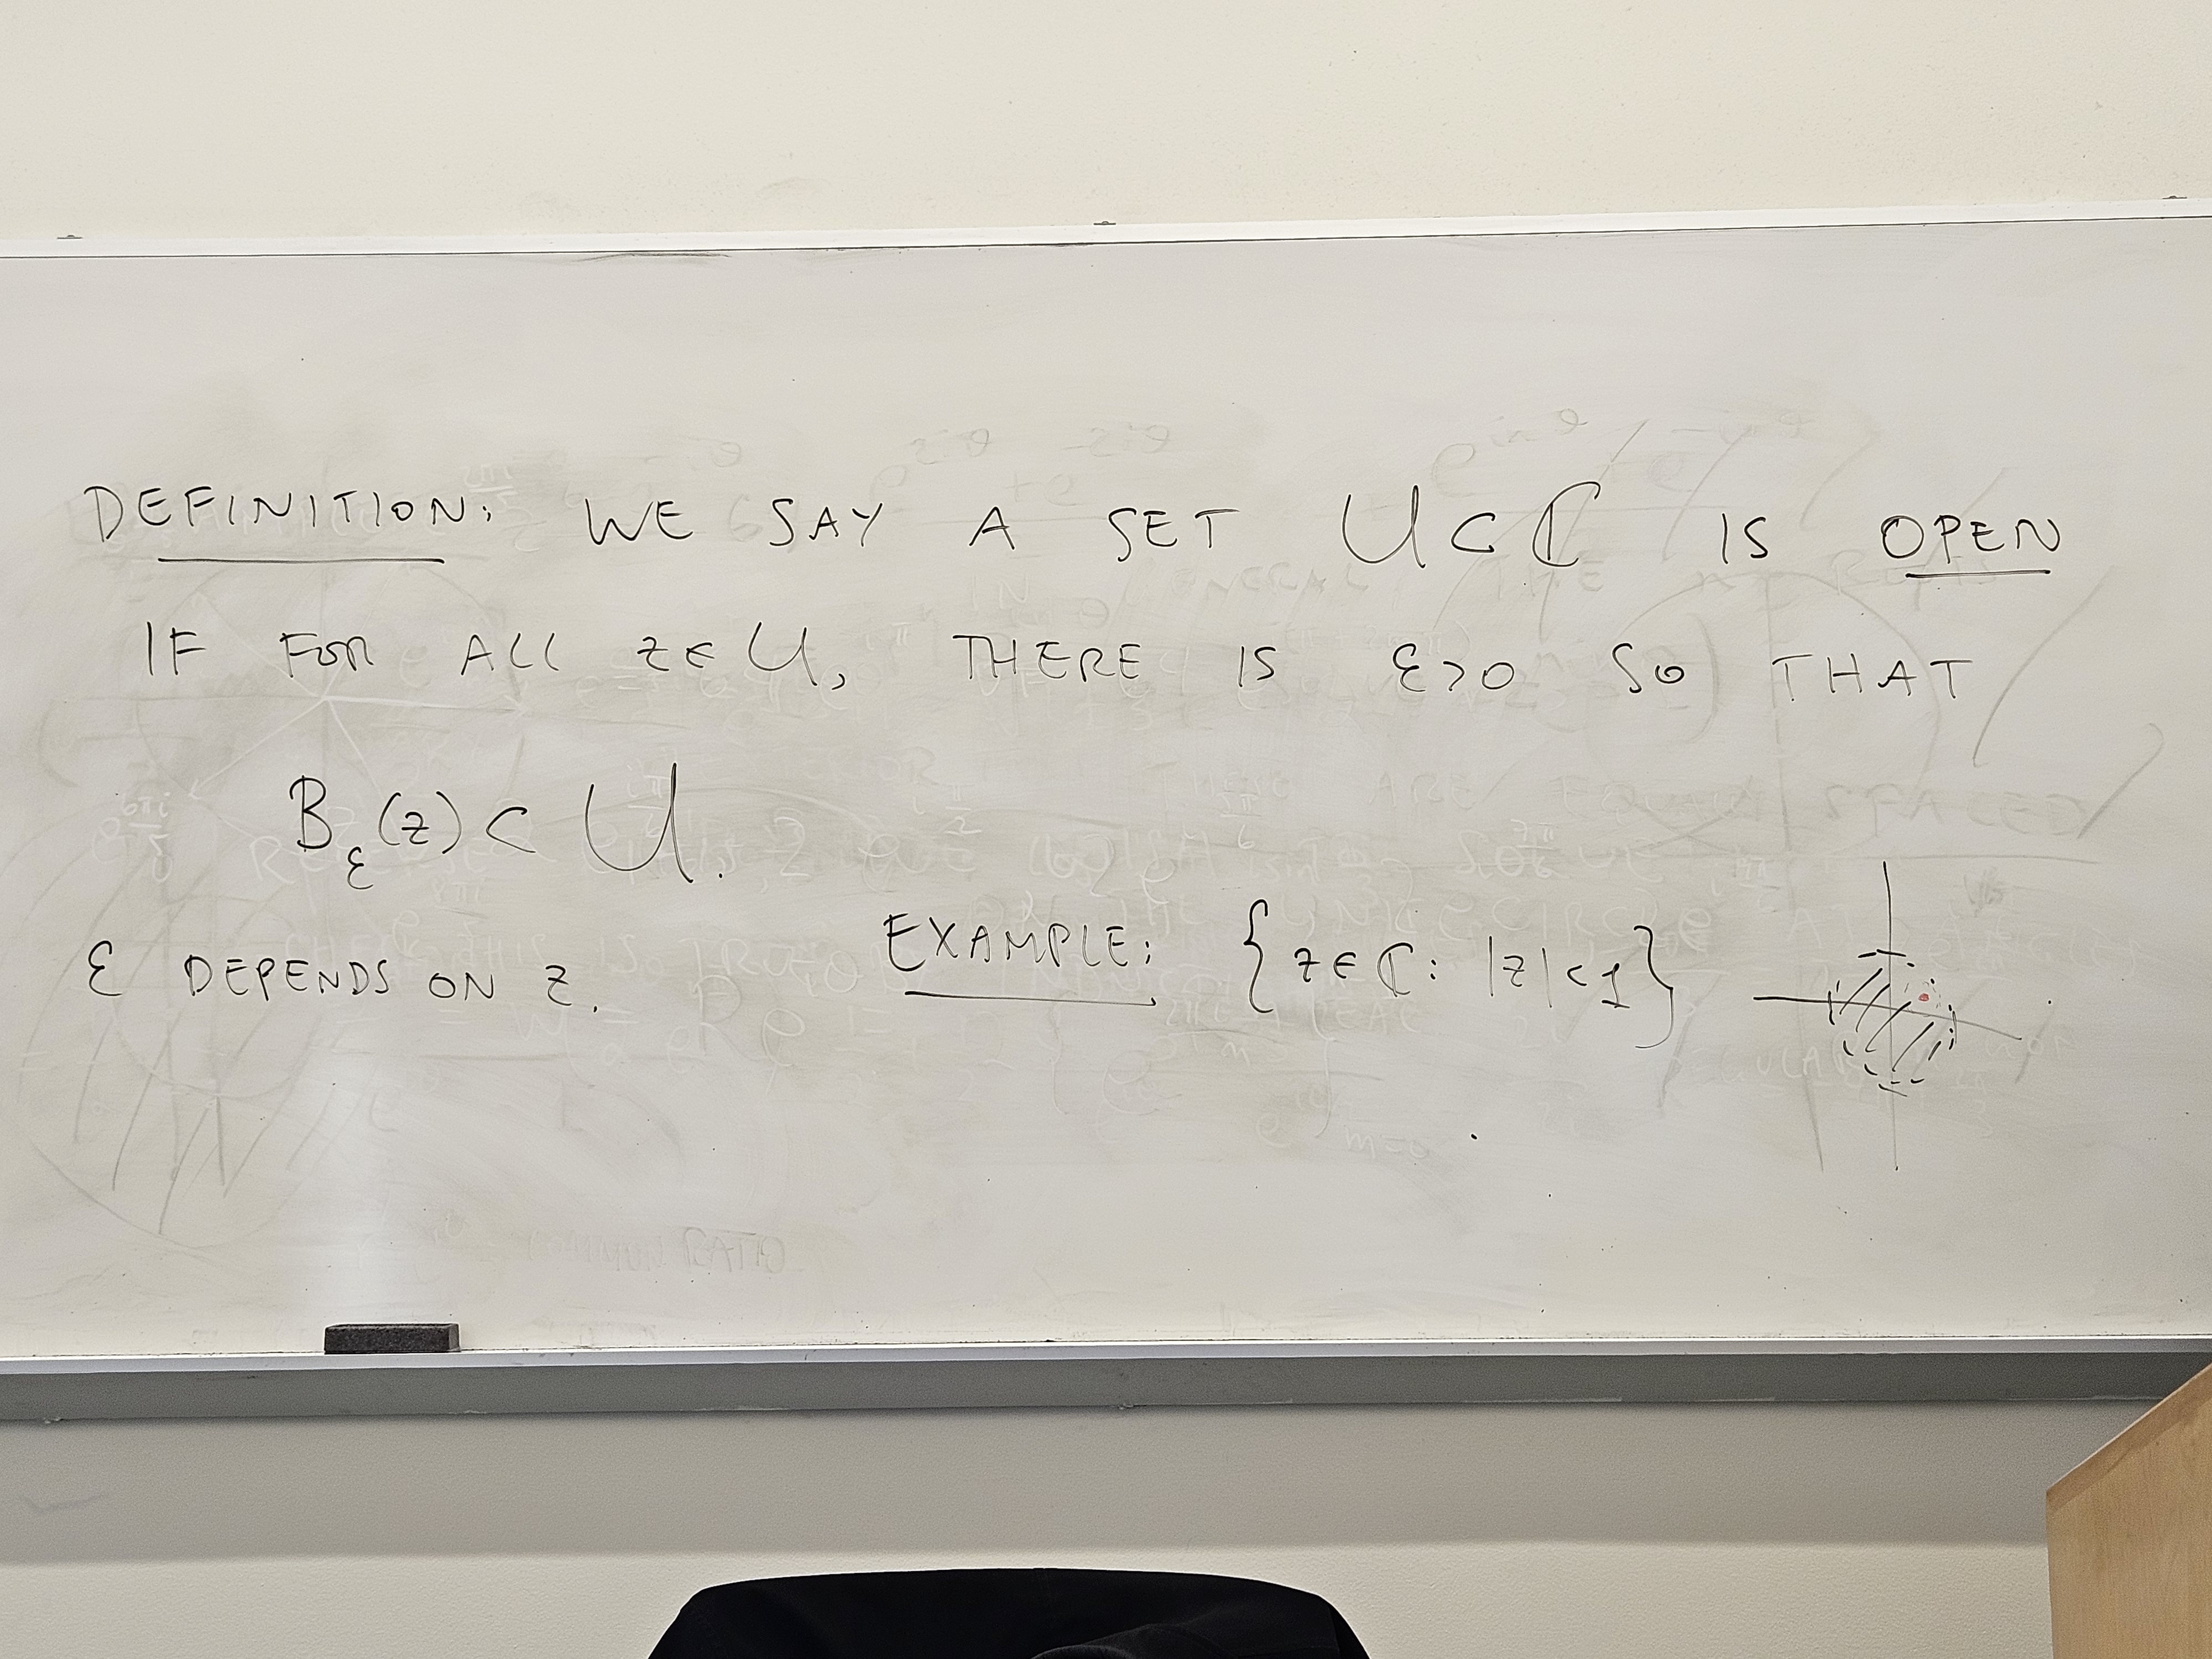 DEFINITION: WE SAY A SET U ⊂ ℂ IS OPEN
IF FOR ALL z ∈ U, THERE IS ε>0 SO THAT
B_ε(z) ⊂ U.
ε DEPENDS ON z.
EXAMPLE: {z ∈ ℂ: |z|<1}